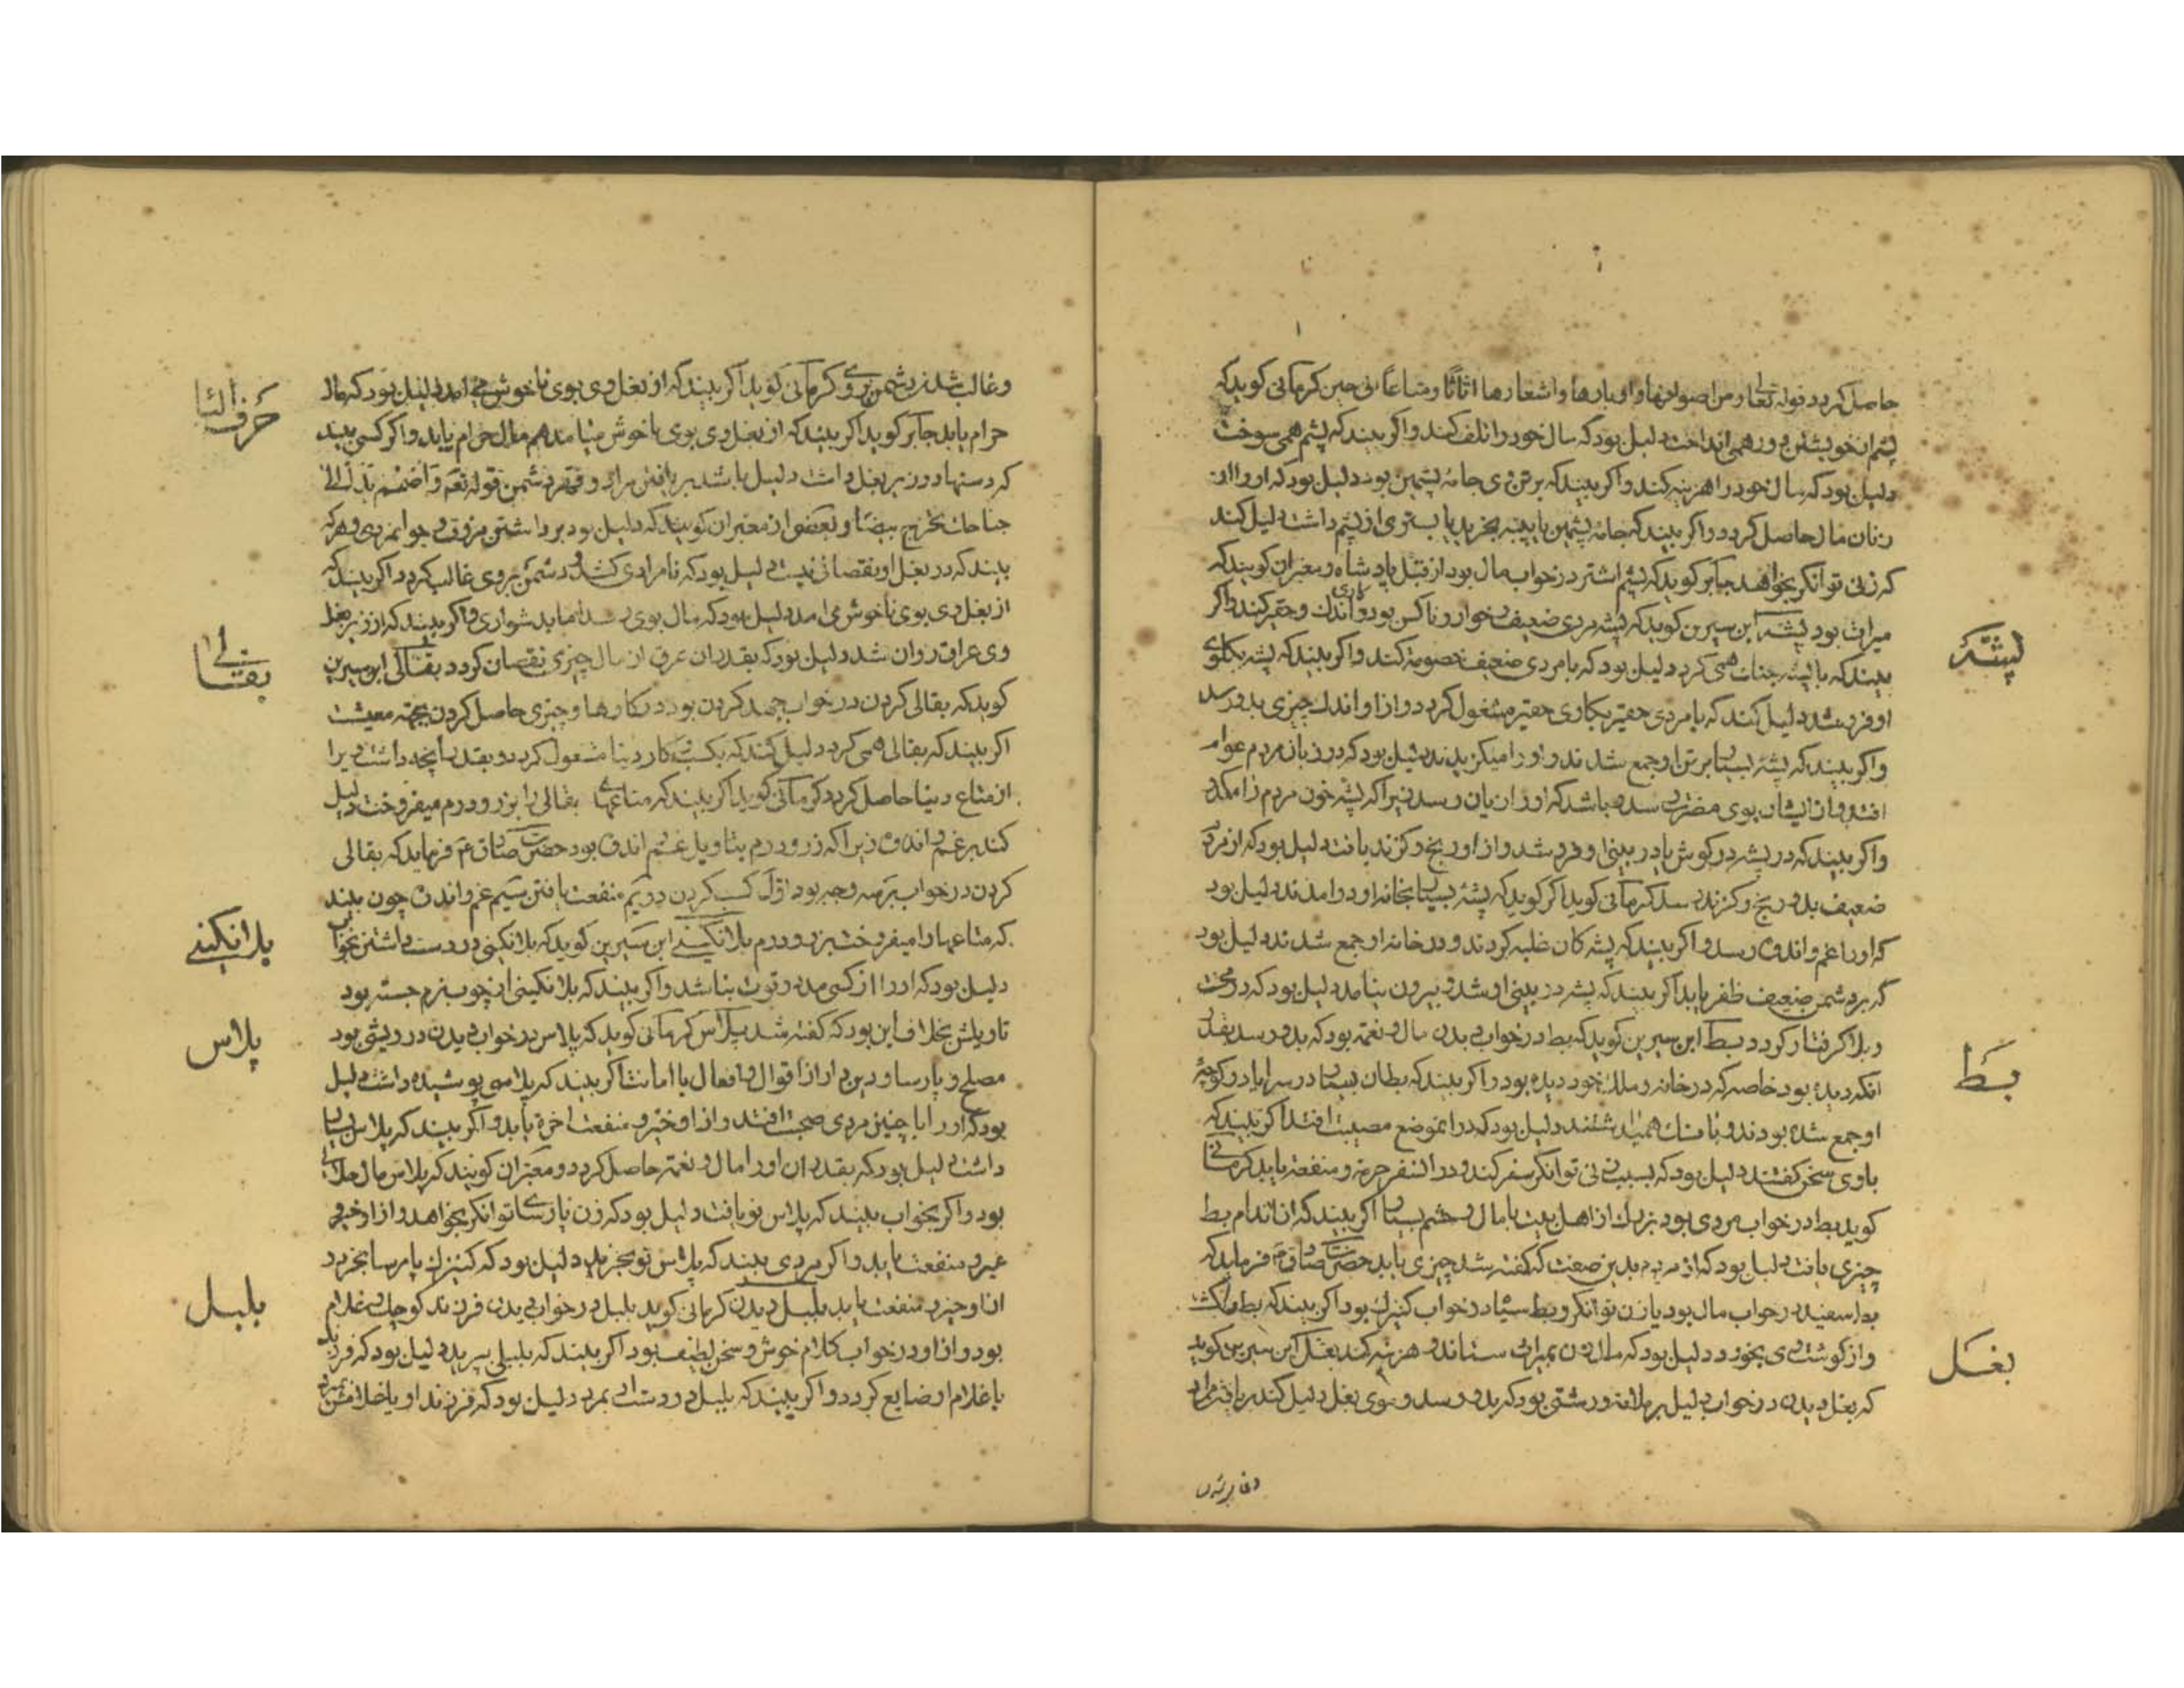 حاصل کردد قوله تعالی ومن اصوافها واوبارها واشعارها اثاثا ومتاعا الی حین کرمانی کوید که
پشم از خویشتن دور همی انداخت دلیل بود که مال خود را تلف کند واکر بیند که پشم همی سوخت
دلیل بود که مال خود را هزینه کند واکر بیند که بر تن وی جامهٔ پشمین بود دلیل بود که او را از
زنان مال حاصل کردد واکر بیند که جامهٔ پشمین یا پنبه بخرید یا بستری از پشم داشت دلیل کند
که زنی توانکر بخواهد جابر کوید که پشم اشتر در خواب مال بود از قبل پادشاه ومعبران کویند که
میراث بود پشه ابن سیرین کوید که پشه مردی ضعیف وخوار وناکس بود اندک وحقیر کند واکر
بیند که با پشه جنک همی کرد دلیل بود که با مردی ضعیف خصومت کند واکر بیند که پشه بکلوی
او فرو شد دلیل کند که با مردی حقیر بکاری حقیر مشغول کردد واز او اندک چیزی بدو رسد
واکر بیند که پشهٔ بسیار بر تن او جمع شدند واو را میکزیدند دلیل بود که در زبان مردم عوام
افتد واز ایشان بوی مضرت رسد باشد که او را زیان رسد زیرا که پشه خون مردم را مکد
واکر بیند که در پشه در کوش یا در بینی او فرو شد واز او رنج وکزند یافت دلیل بود که از مرد
ضعیف بدو رنج وکزند رسد کرمانی کوید اکر کوید که پشهٔ بسیار بخانه او در امدند دلیل بود
که او را غم واندوه رسد واکر بیند که پشه کان غلبه کردند ودر خانه او جمع شدند دلیل بود
که بر دشمن ضعیف ظفر یابد اکر بیند که پشه در بینی او شد وبیرون نیامد دلیل بود که در محنت
وبلا کرفتار کردد بط ابن سیرین کوید که بط در خواب دیدن مال ونعمت بود که بدو رسد بقدر
انکه دیده بود خاصه که در خانه وملک خود دیده بود واکر بیند که بطان بسیار در سرای یا در کوچهٔ
او جمع شده بودند وبانک همی داشتند دلیل بود که در ان موضع مصیبت افتد اکر بیند که
با وی سخن کفتند دلیل بود که بسبب زنی توانکر سفر کند ودر ان سفر حرمت ومنفعت یابد کرمانی
کوید بط در خواب مردی بود بزرک از اهل بیت با مال وحشم بسیار اکر بیند که از اندام بط
چیزی یافت دلیل بود که از مردم بدین صفت که کفته شد چیزی یابد حضرت صادق ع فرماید که
بط سفید در خواب مال بود یا زن توانکر وبط سیاه در خواب کنیزک بود اکر بیند که بط را بکشت
واز کوشت وی بخورد دلیل بود که مال زن بمیراث ستاند وهزینه کند بغل ابن سیرین کوید
که بغل دیدن در خواب دلیل بر ملامت وزشتی بود که بدو رسد وموی بغل دلیل کند بر یافتن مراد
پشه
بط
بغل
وغالب شدن
وغالب شدن بر دشمن وکرمانی کوید اکر بیند که از بغل وی بوی ناخوش می امد دلیل بود که مال
حرام یابد جابر کوید اکر بیند که از بغل وی بوی ناخوش نیامد هم مال حرام یابد واکر کسی بیند
که دستها در زیر بغل داشت دلیل باشد بر یافتن مراد وقهر دشمن قوله تعه واضمم یدک الی
جناحک تخرج بیضاء وبعضی از معبران کویند که دلیل بود بر داشتن مروت وجوانمردی وهر که
بیند که در بغل او نقصانی نیست دلیل بود که نامرادی کشد ودشمن بر وی غالب کردد اکر بیند که
از بغل وی بوی ناخوش می امد دلیل بود که مال بوی رسد اما بدشواری واکر بیند که از زیر بغل
وی عرق روان شد دلیل بود که بقدر ان عرق از مال چیزی نقصان کردد بقالی ابن سیرین
کوید که بقالی کردن در خواب جهد کردن بود در کارها وچیزی حاصل کردن بجهة معیشت
اکر بیند که بقالی همی کرد دلیل کند که بکسب کار دنیا مشغول کردد وبقدر انچه داشت ویرا
از متاع دنیا حاصل کردد کرمانی کوید اکر بیند که متاعهای بقالی را بزر ودرم میفروخت دلیل
کند بر غم واندوه زیرا که زر ودرم بتاویل غم اندوه بود حضرت صادق ع فرماید که بقالی
کردن در خواب بر سه وجه بود اول کسب کردن دویم منفعت یافتن سیم غم واندوه چون بیند
که متاعها را میفروخت بزر ودرم بلانکینی ابن سیرین کوید که بلانکینی در دست داشتن بخواب
دلیل بود که او را از کسی مدد وقوت نباشد واکر بیند که بلانکینی از چوب نرم جسته بود
تاویلش بخلاف این بود که کفته شد پلاس کرمانی کوید که پلاس در خواب دیدن درویشی بود
مصلح وپارسا ودین دار از اقوال وافعال با امانت اکر بیند که پلاسی پوشیده داشت دلیل
بود که او را با چنین مردی صحبت افتد واز او خیر ومنفعت اخرة یابد واکر بیند که پلاس بسیار
داشت دلیل بود که بقدر ان او را مال ونعمت حاصل کردد ومعبران کویند که پلاس مال حلال
بود واکر بخواب بیند که پلاس نو یافت دلیل بود که زن پارسا توانکر بخواهد واز او خیر و
منفعت یابد واکر مردی بیند که پلاس نو بخرید دلیل بود که کنیزک پارسا بخرد و
از او خیر ومنفعت یابد بلبل دیدن کرمانی کوید بلبل در خواب دیدن فرزند کوچک وغلام
بود واز او در خواب کلام خوش وسخن لطیف بود اکر بیند که بلبلی بپرید دلیل بود که فرزند
یا غلام او ضایع کردد واکر بیند که بلبل در دست او بمرد دلیل بود که فرزند او یا غلامش بمیرد
حرف البا
بقالی
بلانکینی
پلاس
بلبل